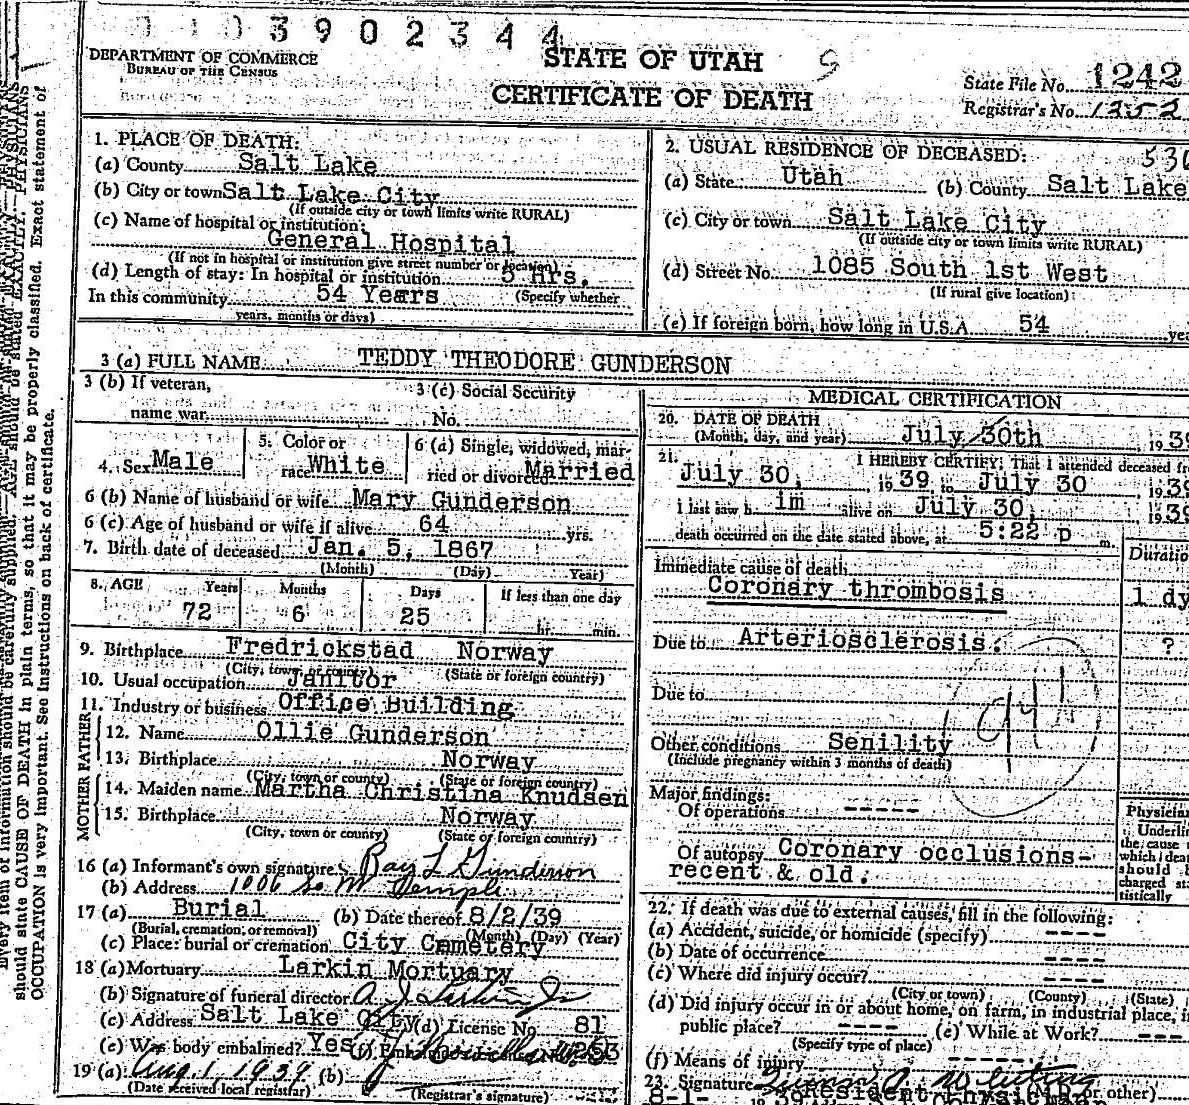 3902344
DEPARTMENT OF COMMERCE
BUREAU OF THE CENSUS
STATE OF UTAH
CERTIFICATE OF DEATH
State File No. 1242
Registrar's No. 1352
1. PLACE OF DEATH:
(a) County Salt Lake
(b) City or town Salt Lake City
(If outside city or town limits write RURAL)
(c) Name of hospital or institution:
General Hospital
(If not in hospital or institution give street number or location)
(d) Length of stay: In hospital or institution 5 Hrs.
In this community 54 Years (Specify whether
years, months or days)
2. USUAL RESIDENCE OF DECEASED: 530
(a) State Utah (b) County Salt Lake
(c) City or town Salt Lake City
(If outside city or town limits write RURAL)
(d) Street No. 1085 South 1st West
(If rural give location)
(e) If foreign born, how long in U.S.A. 54
3 (a) FULL NAME TEDDY THEODORE GUNDERSON
3 (b) If veteran, 3 (c) Social Security
name war No.
4. Sex Male 5. Color or race White 6 (a) Single, widowed, married or divorced Married
6 (b) Name of husband or wife Mary Gunderson
6 (c) Age of husband or wife if alive 64 yrs.
7. Birth date of deceased Jan. 5, 1867
(Month) (Day) Year)
8. AGE Years Months Days If less than one day
72 6 25 hr. min.
9. Birthplace Fredrickstad Norway
(City, town or county) (State or foreign country)
10. Usual occupation Janitor
11. Industry or business Office Building
FATHER
12. Name Ollie Gunderson
13. Birthplace Norway
(City, town or county) (State or foreign country)
MOTHER
14. Maiden name Martha Christina Knudsen
15. Birthplace Norway
(City, town or county) (State or foreign country)
16 (a) Informant's own signature Ray L Gunderson
(b) Address 1006 So W Temple
17 (a) Burial (b) Date thereof 8/2/39
(Burial, cremation, or removal) (Month) (Day) (Year)
(c) Place: burial or cremation City Cemetery
18 (a) Mortuary Larkin Mortuary
(b) Signature of funeral director A J Larkin Jr
(c) Address Salt Lake City (d) License No. 81
(e) Was body embalmed? Yes
19 (a) Aug 1 1939 (b)
(Date received local registrar) (Registrar's signature)
MEDICAL CERTIFICATION
20. DATE OF DEATH
(Month, day, and year) July 30th 1939
21. I HEREBY CERTIFY, That I attended deceased from
July 30, 1939 to July 30 1939
I last saw h im alive on July 30, 1939
death occurred on the date stated above, at 5:22 p m.
Immediate cause of death Duration
Coronary thrombosis 1 dy
Due to Arteriosclerosis. ?
Due to
Other conditions Senility
(Include pregnancy within 3 months of death)
Major findings:
Of operations ----
Of autopsy Coronary occlusions-
recent & old.
Physician
Underline
the cause
which death
should be
charged sta-
tistically
22. If death was due to external causes, fill in the following:
(a) Accident, suicide, or homicide (specify) ----
(b) Date of occurrence ----
(c) Where did injury occur? ----
(City or town) (County) (State)
(d) Did injury occur in or about home, on farm, in industrial place, in
public place? ---- (e) While at Work? ----
(Specify type of place)
(f) Means of injury -----
23. Signature
Resident Physician or other)
8-1- 1939
should state CAUSE OF DEATH in plain terms, so that it may be properly classified. Exact statement of
OCCUPATION is very important. See Instructions on back of certificate.